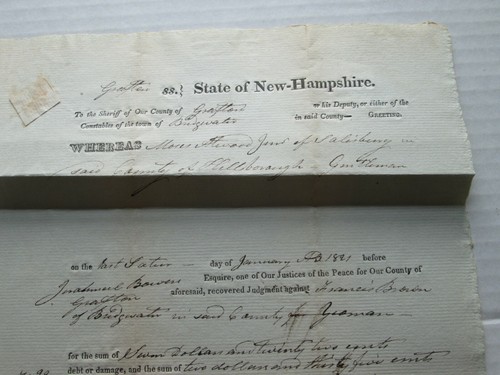 Grafton ss.} State of New-Hampshire.
To the Sheriff of Our County of Grafton or his Deputy, or either of the
Constables of the town of Bridgwater in said County— GREETING.
WHEREAS Moses Atwood Junr of Salisbury in
said County of Hillsborough - Gentleman
on the last Satur— day of January AD 1821 before
Bowers Esquire, one of Our Justices of the Peace for Our County of
Grafton aforesaid, recovered Judgment against Francis Brown
of Bridgwater in said County Yeoman—
for the sum of Seven Dollars and twenty two cents
debt or damage, and the sum of two dollars and thirty five cents